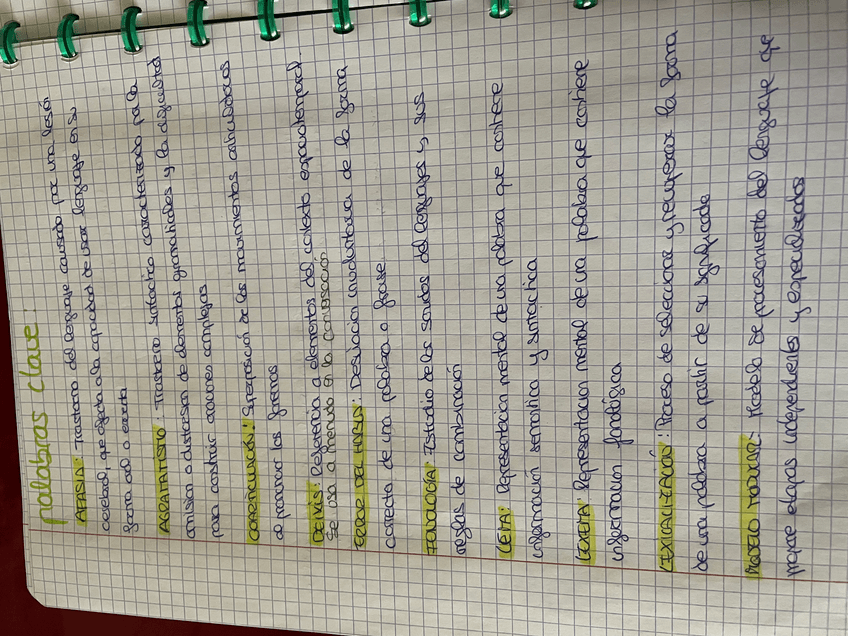 palabras clave:
AFASIA: Trastorno del lenguaje causado por una lesión
cerebral, que afecta a la capacidad de usar lenguaje en su
forma oral o escrita
AGRAMATISMO: Trastorno sintáctico caracterizado por la
omisión o distorsion de elementos gramaticales y la dificultad
para construir oraciones complejas
COARTICULACIÓN: Superposición de los movimientos articulatorios
al pronunciar los fonemas
DEIXIS: Referencia a elementos del contexto espaciotemporal.
Se usa a menudo en la conversación.
ERROR DEL HABLA: Desviación involuntaria de la forma
correcta de una palabra o frase.
FONOLOGÍA: Estudio de los sonidos del lenguaje y sus
reglas de combinación
LEMA: Representación mental de una palabra que contiene
información semántica y sintáctica
LEXEMA: Representación mental de una palabra que contiene
información fonológica
LEXICALIZACIÓN: Proceso de seleccionar y recuperar la forma
de una palabra a partir de su significado
MODELO MODULAR: Modelo de procesamiento del lenguaje que
propone etapas independientes y especializadas